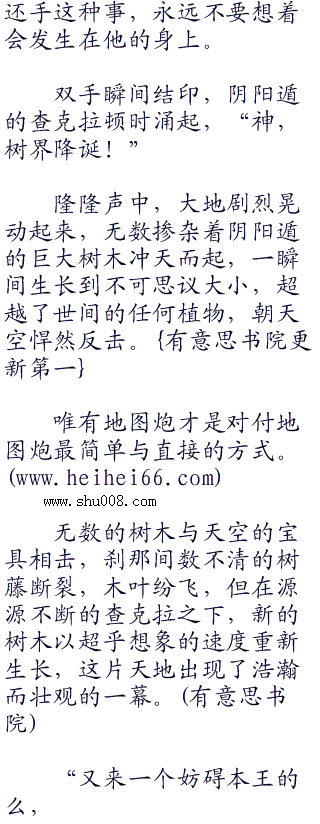 还手这种事，永远不要想着
会发生在他的身上。
双手瞬间结印，阴阳遁
的查克拉顿时涌起，“神，
树界降诞！”
隆隆声中，大地剧烈晃
动起来，无数掺杂着阴阳遁
的巨大树木冲天而起，一瞬
间生长到不可思议大小，超
越了世间的任何植物，朝天
空悍然反击。{有意思书院更
新第一}
唯有地图炮才是对付地
图炮最简单与直接的方式。
(www.heihei66.com)
www.shu008.com
无数的树木与天空的宝
具相击，刹那间数不清的树
藤断裂，木叶纷飞，但在源
源不断的查克拉之下，新的
树木以超乎想象的速度重新
生长，这片天地出现了浩瀚
而壮观的一幕。(有意思书
院)
“又来一个妨碍本王的
么，